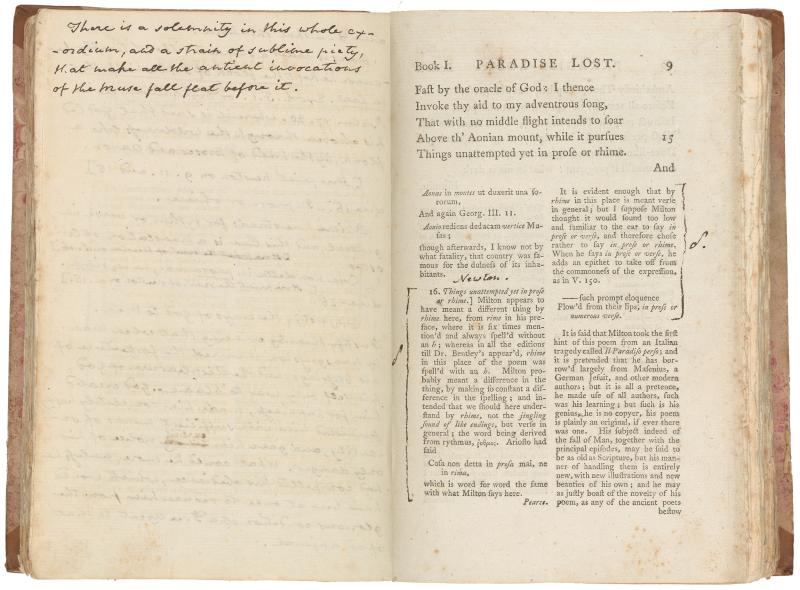 There is a solemnity in this whole ex-
-ordium, and a strain of sublime piety,
that make all the antient invocations
of the Muse fall flat before it.
Book I. PARADISE LOST. 9
Faſt by the oracle of God: I thence
Invoke thy aid to my adventrous ſong,
That with no middle flight intends to ſoar
Above th' Aonian mount, while it purſues 15
Things unattempted yet in proſe or rhime.
And
Aonas in montes ut duxerit una ſo-
rorum,
And again Georg. III. 11.
Aonio rediens deducam vertice Mu-
ſas;
though afterwards, I know not by
what fatality, that country was fa-
mous for the dulneſs of its inha-
bitants.
Newton.
16. Things unattempted yet in proſe
or rhime.] Milton appears to
have meant a different thing by
rhime here, from rime in his pre-
face, where it is ſix times men-
tion'd and always ſpell'd without
an h; whereas in all the editions
till Dr. Bentley's appear'd, rhime
in this place of the poem was
ſpell'd with an h. Milton pro-
bably meant a difference in the
thing, by making ſo conſtant a dif-
ference in the ſpelling; and in-
tended that we ſhould here under-
ſtand by rhime, not the jingling
ſound of like endings, but verſe in
general; the word being derived
from rythmus, Arioſto had
ſaid
Coſa non detta in proſa mai, ne
in rima,
which is word for word the ſame
with what Milton ſays here.
Pearce.
It is evident enough that by
rhime in this place is meant verſe
in general; but I ſuppoſe Milton
thought it would ſound too low
and familiar to the ear to ſay in
proſe or verſe, and therefore choſe
rather to ſay in proſe or rhime.
When he ſays in proſe or verſe, he
adds an epithet to take off from
the commonneſs of the expreſſion,
as in V. 150.
——ſuch prompt eloquence
Flow'd from their lips, in proſe or
numerous verſe.
It is ſaid that Milton took the firſt
hint of this poem from an Italian
tragedy called Il Paradiſo perſo; and
it is pretended that he has bor-
row'd largely from Maſenius, a
German Jeſuit, and other modern
authors; but it is all a pretence,
he made uſe of all authors, ſuch
was his learning; but ſuch is his
genius, he is no copyer, his poem
is plainly an original, if ever there
was one. His ſubject indeed of
the fall of Man, together with the
principal epiſodes, may be ſaid to
be as old as Scripture, but his man-
ner of handling them is entirely
new, with new illuſtrations and new
beauties of his own; and he may
as juſtly boaſt of the novelty of his
poem, as any of the ancient poets
beſtow